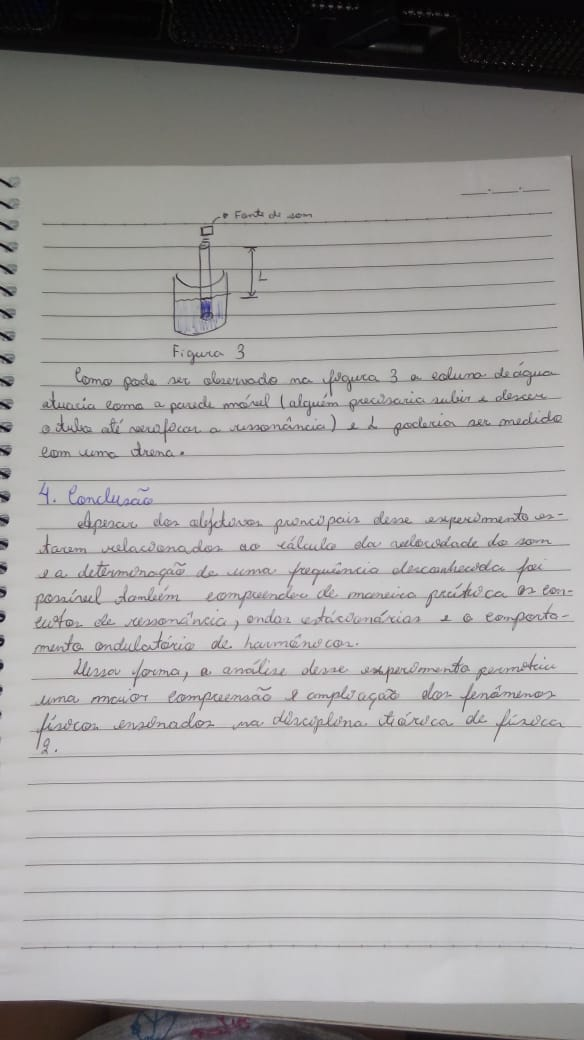 Fonte de som
L
Figura 3
Como pode ser observado na figura 3 a coluna de água
atuaria como a parede móvel (alguém precisaria subir e descer
o tubo até verificar a ressonância) e L poderia ser medido
com uma trena.
4. Conclusão
Apesar dos objetivos principais desse experimento es-
tarem relacionados ao cálculo da velocidade do som
e a determinação de uma frequência desconhecida foi
possível também compreender de maneira prática os con-
ceitos de ressonância, ondas estacionárias e o comporta-
mento ondulatório de harmônicos.
Dessa forma, a análise desse experimento permitiu
uma maior compreensão e ampliação dos fenômenos
físicos ensinados na disciplina teórica de física
2.